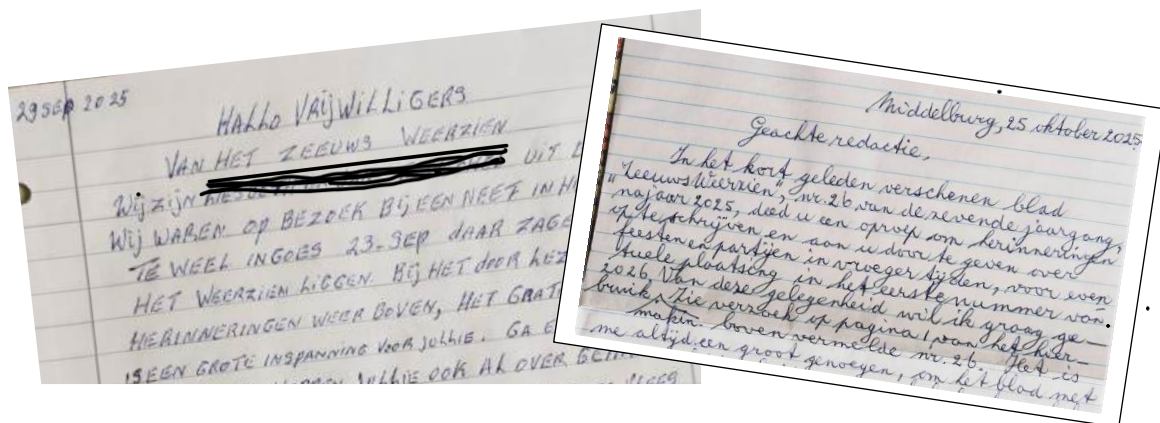 29 SEP 2025
HALLO VRIJWILLIGERS
VAN HET ZEEUWS WEERZIEN
Wij ZIJN UIT
Wij WAREN OP BEZOEK BIJ EEN NEEF IN
TE WEEL IN GOES 23-SEP DAAR ZAGE
HET WEERZIEN LIGGEN. BIJ HET DOOR LEZ
HERINNERINGEN WEER BOVEN, HET GRAT
IS EEN GROTE INSPANNING VOOR JULLIE. GA E
JULLIE OOK AL OVER
Middelburg, 25 oktober 2025
Geachte redactie,
In het kort geleden verschenen blad
"Zeeuws Weerzien", nr. 26 van de zevende jaargang,
najaar 2025, deed u een oproep om herinneringen
op te schrijven en aan u door te geven over
feesten en partijen in vroeger tijden, voor even
tuele plaatsing in het eerste nummer van
2026. Van deze gelegenheid wil ik graag ge-
bruik Zie verzoek op pagina 1 van het hier-
maken. boven vermelde nr. 26. Het is
me altijd een groot genoegen, om het blad met